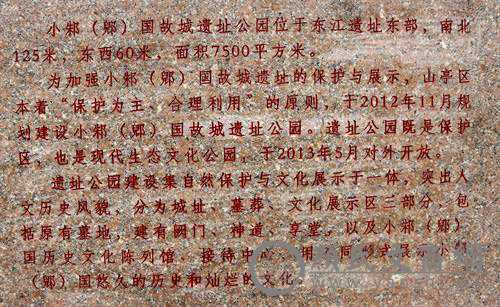 小邾（郳）国故城遗址公园位于东江遗址东部，南北
125米，东西60米，面积7500平方米。
为加强小邾（郳）国故城遗址的保护与展示，山亭区
本着“保护为主、合理利用”的原则，于2012年11月规
划建设小邾（郳）国故城遗址公园。遗址公园既是保护
区，也是现代生态文化公园，于2013年5月对外开放。
遗址公园建设集自然保护与文化展示于一体，突出人
文历史风貌，分为城址、墓葬、文化展示区三部分，包
括原有墓地，建有阙门、神道、享堂，以及小邾（郳）
国历史文化陈列馆、接待中 用 同 式展示小
（郳）国悠久的历史和灿烂的文化。